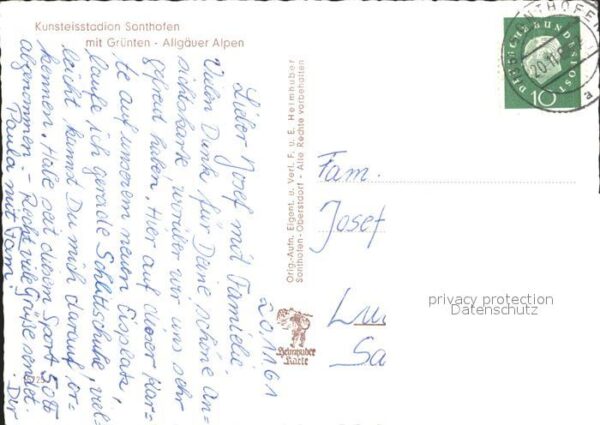 Kunsteisstadion Sonthofen
mit Grünten - Allgäuer Alpen
20.11.61
Lieber Josef mit Familie.
Vielen Dank für Deine schöne An-
sichtskarte, worüber wir uns sehr
gefreut haben. Hier auf dieser Kar-
te auf unserem neuen Eisplatz,
laufe ich gerade Schlittschuhe, viel-
leicht kannst Du mich darauf er-
kennen. Habe seit diesem Sport 50 ℔
abgenommen. - Recht viele Grüße sendet Dir
Paula mit Fam.
Orig.-Aufn. Eigent. u. Verl. F. u. E. Heimhuber
Sonthofen-Oberstdorf - Alle Rechte vorbehalten
Heimhuber
Karte
DEUTSCHE BUNDESPOST
10
SONTHOFEN
a
Fam.
Josef
privacy protection
Datenschutz